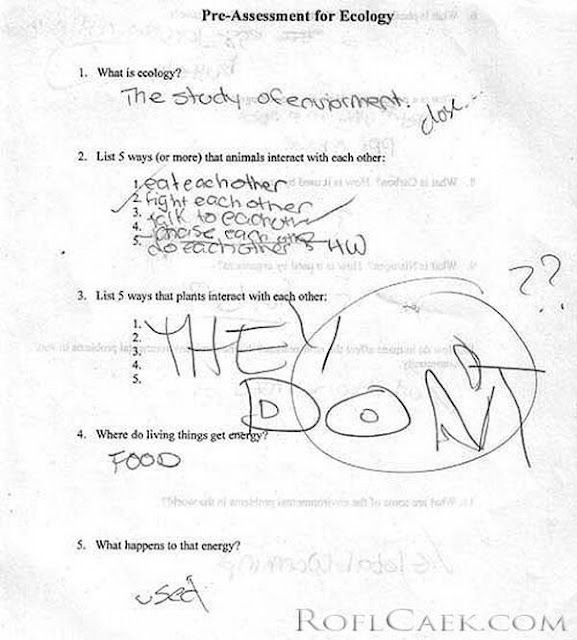 Pre-Assessment for Ecology
1. What is ecology?
The study of enviorment.
close
2. List 5 ways (or more) that animals interact with each other:
1. eat each other
2. fight each other
3. talk to each other
4. chase each other
5. do each other
3. List 5 ways that plants interact with each other:
??
1. THEY
2.
3.
4.
5.
DON'T
4. Where do living things get energy?
FOOD
5. What happens to that energy?
used
ROFLCAEK.COM